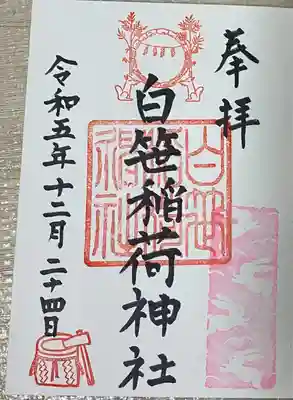 奉拝
白笹稲荷神社
令和五年十二月二十四日